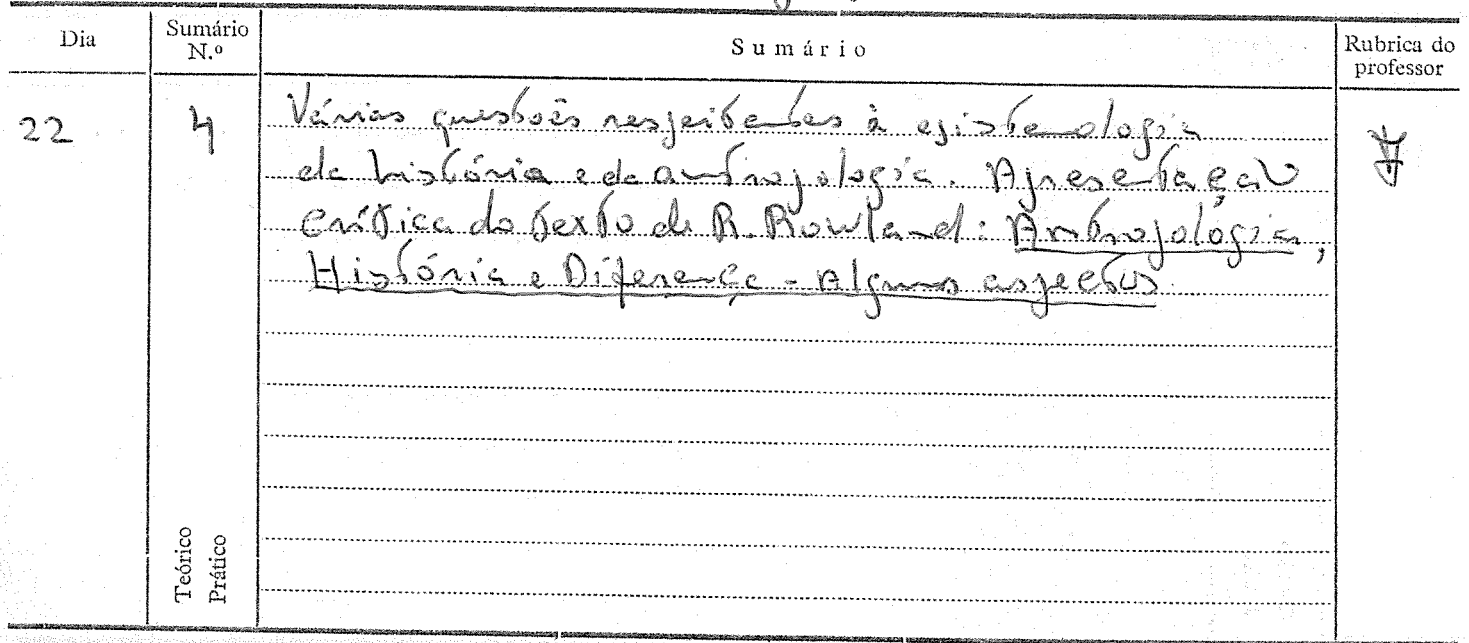 Dia
Sumário N.º
Sumário
Rubrica do professor
22
4
Várias questões respeitantes à epistemologia
da história e da antropologia. Apresentação
crítica do texto de R. Rowland: Antropologia,
História e Diferença - Alguns aspectos
Teórico
Prático